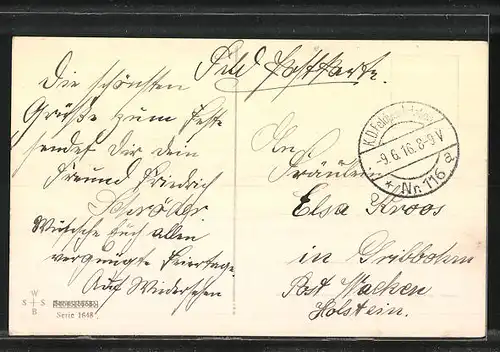 Feld Postkarte.
Die schönsten
Grüße zum Feste
sendet Dir dein
Freund Friedrich
Schröder
Wünsche Euch allen
vergnügte Feiertage
Auf Wiedersehen
An
Fräulein
Elsa Kroos
in Gribbohm
Post Wacken
Holstein.
K.D. Feldpoststation
-9.6.16. 8-9V
* Nr. 116 a
W
S S
B
Serie 1648